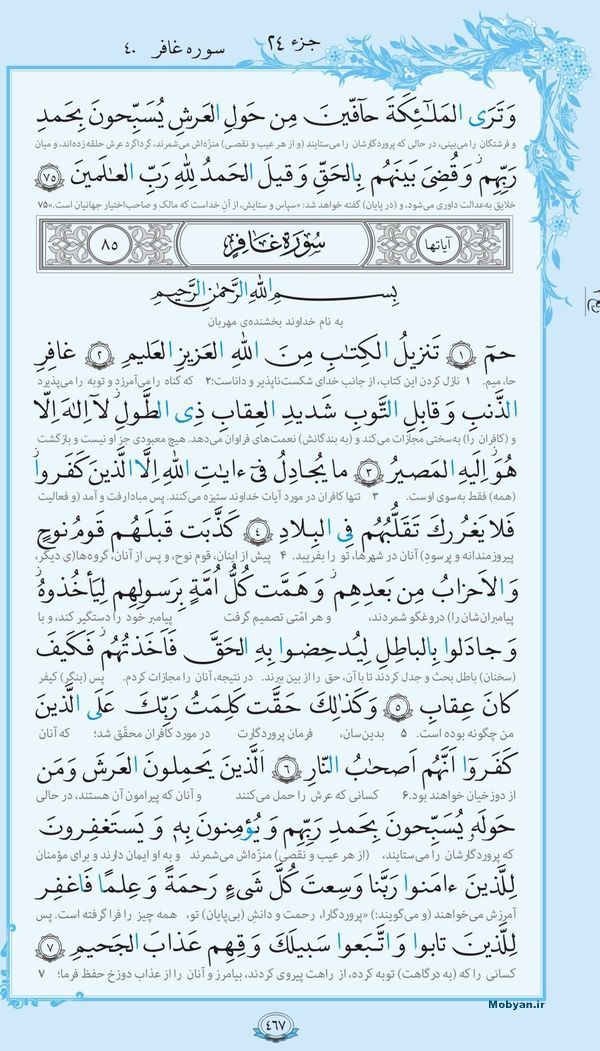 جزء ۲۴ سوره غافر ۴۰
وَ تَرَى المَلٰٓئِكَةَ حآفّينَ مِن حَولِ العَرشِ يُسَبِّحونَ بِحَمدِ
و فرشتگان را می‌بینی، در حالی که پروردگارشان را می‌ستایند (و از هر عیب و نقصی) منزّه‌اش می‌شمرند، گرداگرد عرش حلقه زده‌اند، و میان
رَبِّهِم وَ قُضِىَ بَينَهُم بِالحَقِّ وَ قيلَ الحَمدُ لِلّٰهِ رَبِّ العٰلَمينَ ۷۵
خلایق به‌عدالت داوری می‌شود، و (در پایان) گفته خواهد شد: «سپاس و ستایش، از آنِ خداست که مالک و صاحب‌اختیار جهانیان است.» ۷۵
آیاتها سُورَةُ غَافِرٍ ۸۵
بِسمِ اللهِ الرَّحمٰنِ الرَّحيمِ
به نام خداوند بخشنده‌ی مهربان
حمٓ ۱ تَنزيلُ الكِتٰبِ مِنَ اللهِ العَزيزِ العَليمِ ۲ غافِرِ
حا، میم. ۱ نازل کردن این کتاب، از جانب خدای شکست‌ناپذیر و داناست؛ ۲ که گناه را می‌آمرزد و توبه را می‌پذیرد
الذَّنبِ وَ قابِلِ التَّوبِ شَديدِ العِقابِ ذِى الطَّولِ لآ اِلٰهَ اِلّا
و (کافران را) به‌سختی مجازات می‌کند و (به بندگانش) نعمت‌های فراوان می‌دهد. هیچ معبودی جز او نیست و بازگشت
هُوَ اِلَيهِ المَصيرُ ۳ ما يُجادِلُ فىٓ ءايٰتِ اللهِ اِلَّا الَّذينَ كَفَروا
(همه) فقط به‌سوی اوست. ۳ تنها کافران در مورد آیات خداوند ستیزه می‌کنند. پس مبادا رفت و آمد (و فعالیت
فَلا يَغرُركَ تَقَلُّبُهُم فِى البِلادِ ۴ كَذَّبَت قَبلَهُم قَومُ نوحٍ
پیروزمندانه و پرسود) آنان در شهرها، تو را بفریبد. ۴ پیش از اینان، قوم نوح، و پس از آنان، گروه‌ها(ی دیگر،
وَ الاَحزابُ مِن بَعدِهِم وَ هَمَّت كُلُّ اُمَّةٍ بِرَسولِهِم لِيَأخُذوهُ
پیامبران‌شان را) دروغگو شمردند، و هر امّتی تصمیم گرفت پیامبر خود را دستگیر کند، و با
وَ جادَلوا بِالباطِلِ لِيُدحِضوا بِهِ الحَقَّ فَاَخَذتُهُم فَكَيفَ
(سخنان) باطل بحث و جدل کردند تا با آن، حق را از بین ببرند. در نتیجه، آنان را مجازات کردم. پس (بنگر) کیفر
كانَ عِقابِ ۵ وَ كَذٰلِكَ حَقَّت كَلِمَتُ رَبِّكَ عَلَى الَّذينَ
من چگونه بوده است. ۵ بدین‌سان، فرمان پروردگارت در مورد کافران محقّق شد؛ که آنان
كَفَروٓا اَنَّهُم اَصحٰبُ النّارِ ۶ اَلَّذينَ يَحمِلونَ العَرشَ وَ مَن
از دوزخیان خواهند بود. ۶ کسانی که عرش را حمل می‌کنند و آنان که پیرامون آن هستند، در حالی
حَولَهٗ يُسَبِّحونَ بِحَمدِ رَبِّهِم وَ يُؤمِنونَ بِهٖ وَ يَستَغفِرونَ
که پروردگارشان را می‌ستایند، (از هر عیب و نقصی) منزّه‌اش می‌شمرند و به او ایمان دارند و برای مؤمنان
لِلَّذينَ ءامَنوا رَبَّنا وَسِعتَ كُلَّ شَىءٍ رَحمَةً وَ عِلمًا فَاغفِر
آمرزش می‌خواهند (و می‌گویند:) «پروردگارا، رحمت و دانشِ (بی‌پایان) تو، همه چیز را فرا گرفته است. پس
لِلَّذينَ تابوا وَ اتَّبَعوا سَبيلَكَ وَ قِهِم عَذابَ الجَحيمِ ۷
کسانی را که (به درگاهت) توبه کرده، از راهت پیروی کردند، بیامرز و آنان را از عذاب دوزخ حفظ فرما؛ ۷
Mobyan.ir
۴۶۷